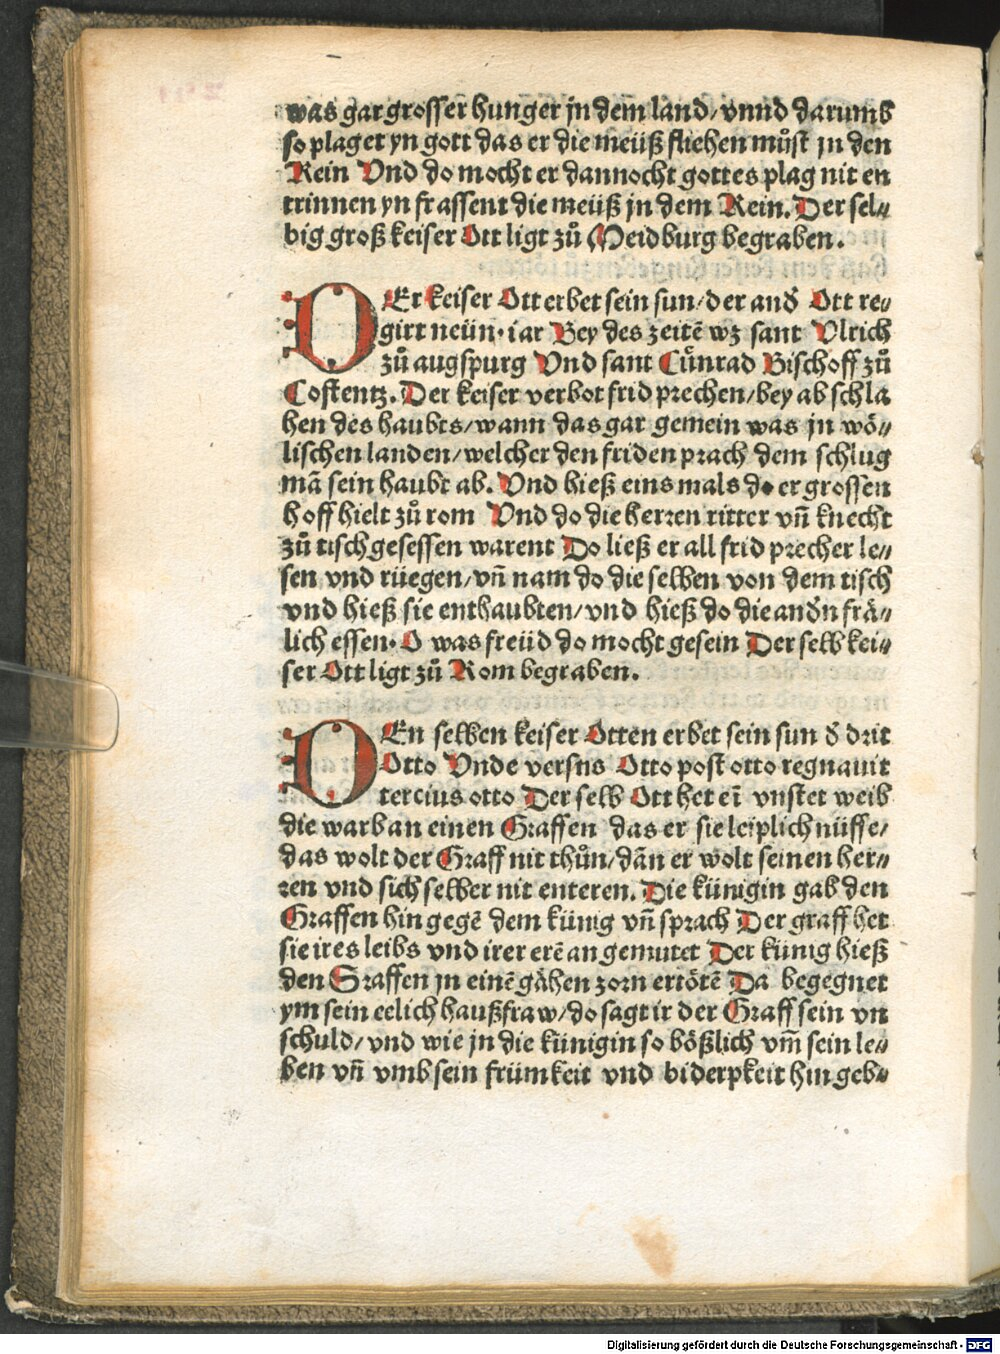 was gar grosser hunger jn dem land/ vnnd darumb
so plaget yn gott das er die meüß fliehen můst jn den
Rein Vnd do mocht er dannocht gottes plag nit en
trinnen yn frassent die meüß jn dem Rein. Der sel⸗
big groß keiser Ott ligt zů Meidburg begraben.
DEr keiser Ott erbet sein sun/ der and̕ Ott re⸗
girt neün iar Bey des zeitē wz sant Vlrich
zů augspurg Vnd sant Cůnrad Bischoff zů
Costentz. Der keiser verbot frid prechen/ bey ab schla
hen des haubts/ wann das gar gemein was jn wö⸗
lischen landen/ welcher den friden prach dem schlug
mā sein haubt ab. Vnd hieß eins mals do er grossen
hoff hielt zů rom Vnd do die herren ritter vn̄ knecht
zů tisch gesessen warent Do ließ er all frid precher le⸗
sen vnd rüegen/ vn̄ nam do die selben von dem tisch
vnd hieß sie enthaubten/ vnd hieß do die and̕n frä⸗
lich essen. O was freüd do mocht gesein Der selb kei⸗
ser Ott ligt zů Rom begraben.
DEn selben keiser Otten erbet sein sun d̕ drit
Otto Vnde versus Otto post otto regnauit
tercius otto Der selb Ott het eī vnstet weib
die warb an einen Graffen das er sie leiplich nüsse/
das wolt der Graff nit thůn/ dān er wolt seinen her⸗
ren vnd sich selber nit enteren. Die künigin gab den
Graffen hin gegē dem künig vn̄ sprach Der graff het
sie ires leibs vnd irer erē an gemutet Der künig hieß
den Graffen jn einē gähen zorn ertötē Da begegnet
ym sein eelich haußfraw/ do sagt ir der Graff sein vn
schuld/ vnd wie jn die künigin so bößlich vm̄ sein le⸗
ben vn̄ vmb sein frümkeit vnd biderpkeit hin geb⸗
Digitalisierung gefördert durch die Deutsche Forschungsgemeinschaft - DFG